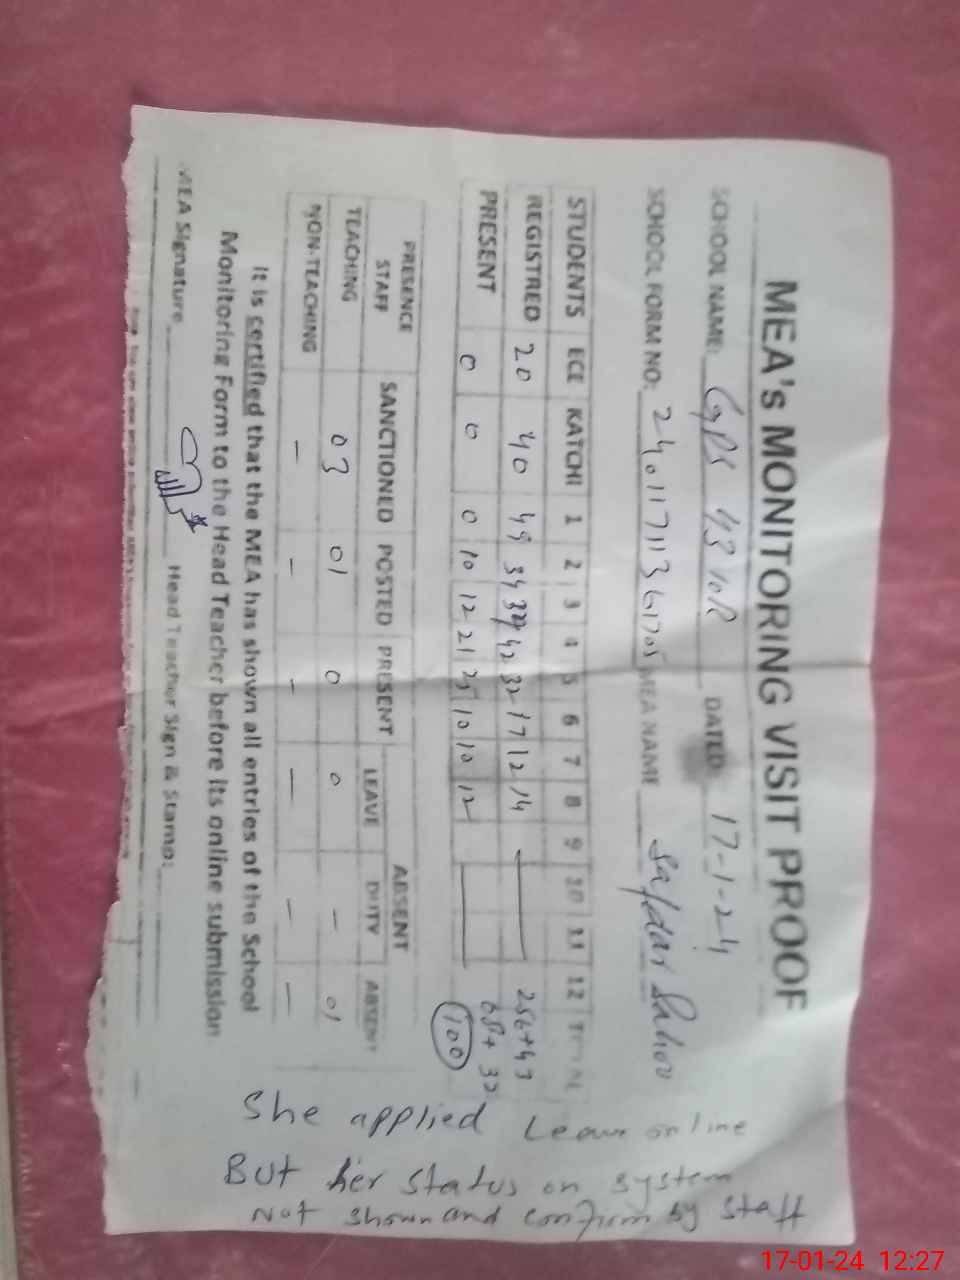 MEA's MONITORING VISIT PROOF
SCHOOL NAME: GPS 43 10R DATED: 17-1-24
SCHOOL FORM NO: MEA NAME Safdar
STUDENTS ECE KATCHI 1 2 3 4 5 6 7 8 9 10 11 12 TOTAL
REGISTRED 20 40 49 34 42 32 17 12 14 256+43
PRESENT 0 0 0 10 12 21 25 10 10 12 68+32
100
PRESENCE STAFF SANCTIONED POSTED PRESENT ABSENT
LEAVE DUTY ABSENT
TEACHING 03 01 0 0 - 01
NON-TEACHING - - - - - -
It is certified that the MEA has shown all entries of the School
Monitoring Form to the Head Teacher before its online submission
MEA Signature Head Teacher Sign & Stamp:
She applied Leave online
But her status on system
Not shown and confirm by staff
17-01-24 12:27